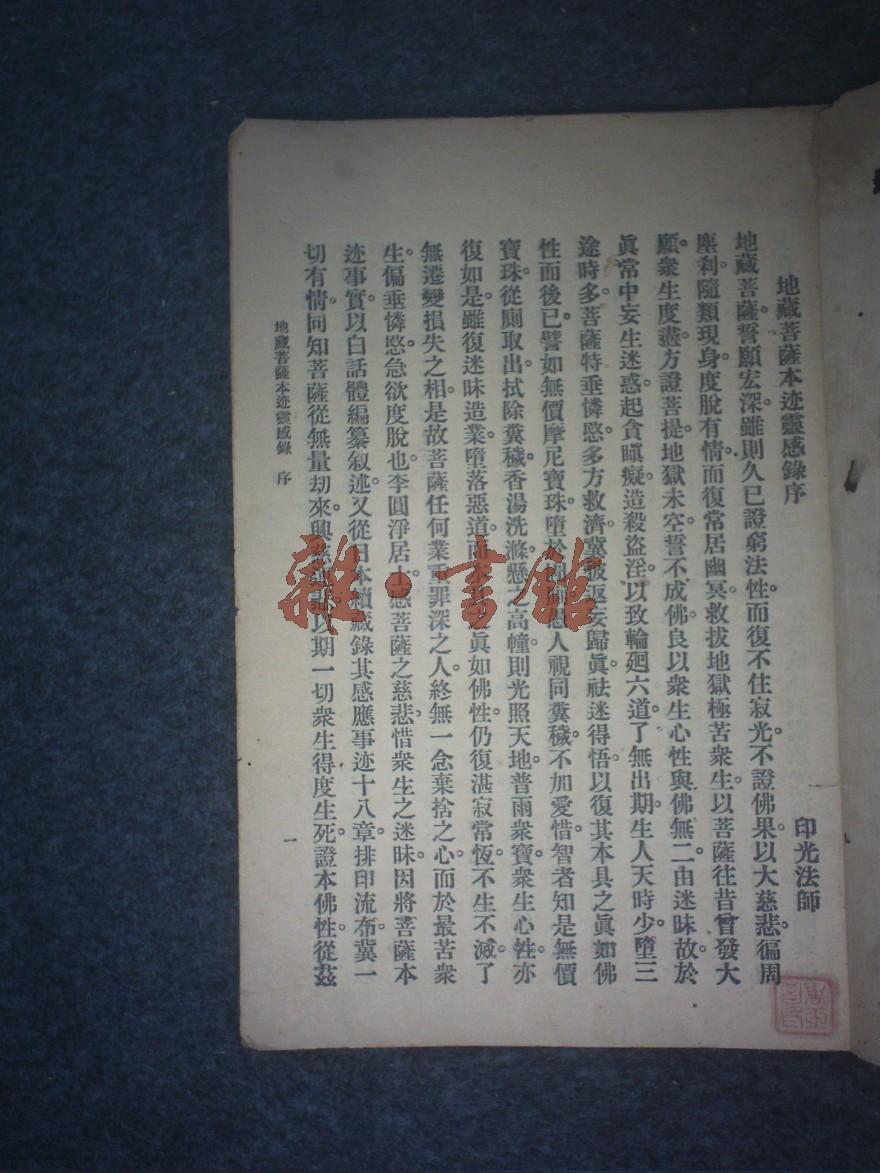 地藏菩薩本迹靈感錄序
印光法師
地藏菩薩誓願宏深。雖則久已證窮法性。而復不住寂光。不證佛果。以大慈悲。徧周
塵刹。隨類現身。度脫有情。而復常居幽冥。救拔地獄極苦衆生。以菩薩往昔曾發大
願。衆生度盡。方證菩提。地獄未空。誓不成佛。良以衆生心性。與佛無二。由迷昧故。於
眞常中。妄生迷惑。起貪瞋癡。造殺盜淫。以致輪廻六道。了無出期。生人天時少。墮三
途時多。菩薩特垂憐愍。多方救濟。冀彼返妄歸眞。祛迷得悟。以復其本具之眞如佛
性而後已。譬如無價摩尼寶珠。墮於 愚人視同糞穢。不加愛惜。智者知是無價
寶珠。從廁取出。拭除糞穢。香湯洗滌。懸之高幢。則光照天地。普雨衆寶。衆生心性。亦
復如是。雖復迷昧造業。墮落惡道。而本 眞如佛性。仍復湛寂常恆。不生不滅。了
無遷變損失之相。是故菩薩任何業重罪深之人。終無一念棄捨之心。而於最苦衆
生。偏垂憐愍。急欲度脫也。李圓淨居士。感菩薩之慈悲。惜衆生之迷昧。因將菩薩本
迹事實。以白話體編纂叙述。又從日本續藏錄其感應事迹十八章。排印流布。冀一
切有情。同知菩薩從無量刼來。興 以期一切衆生得度生死。證本佛性。從茲
地藏菩薩本迹靈感錄 序
一
雜·書館